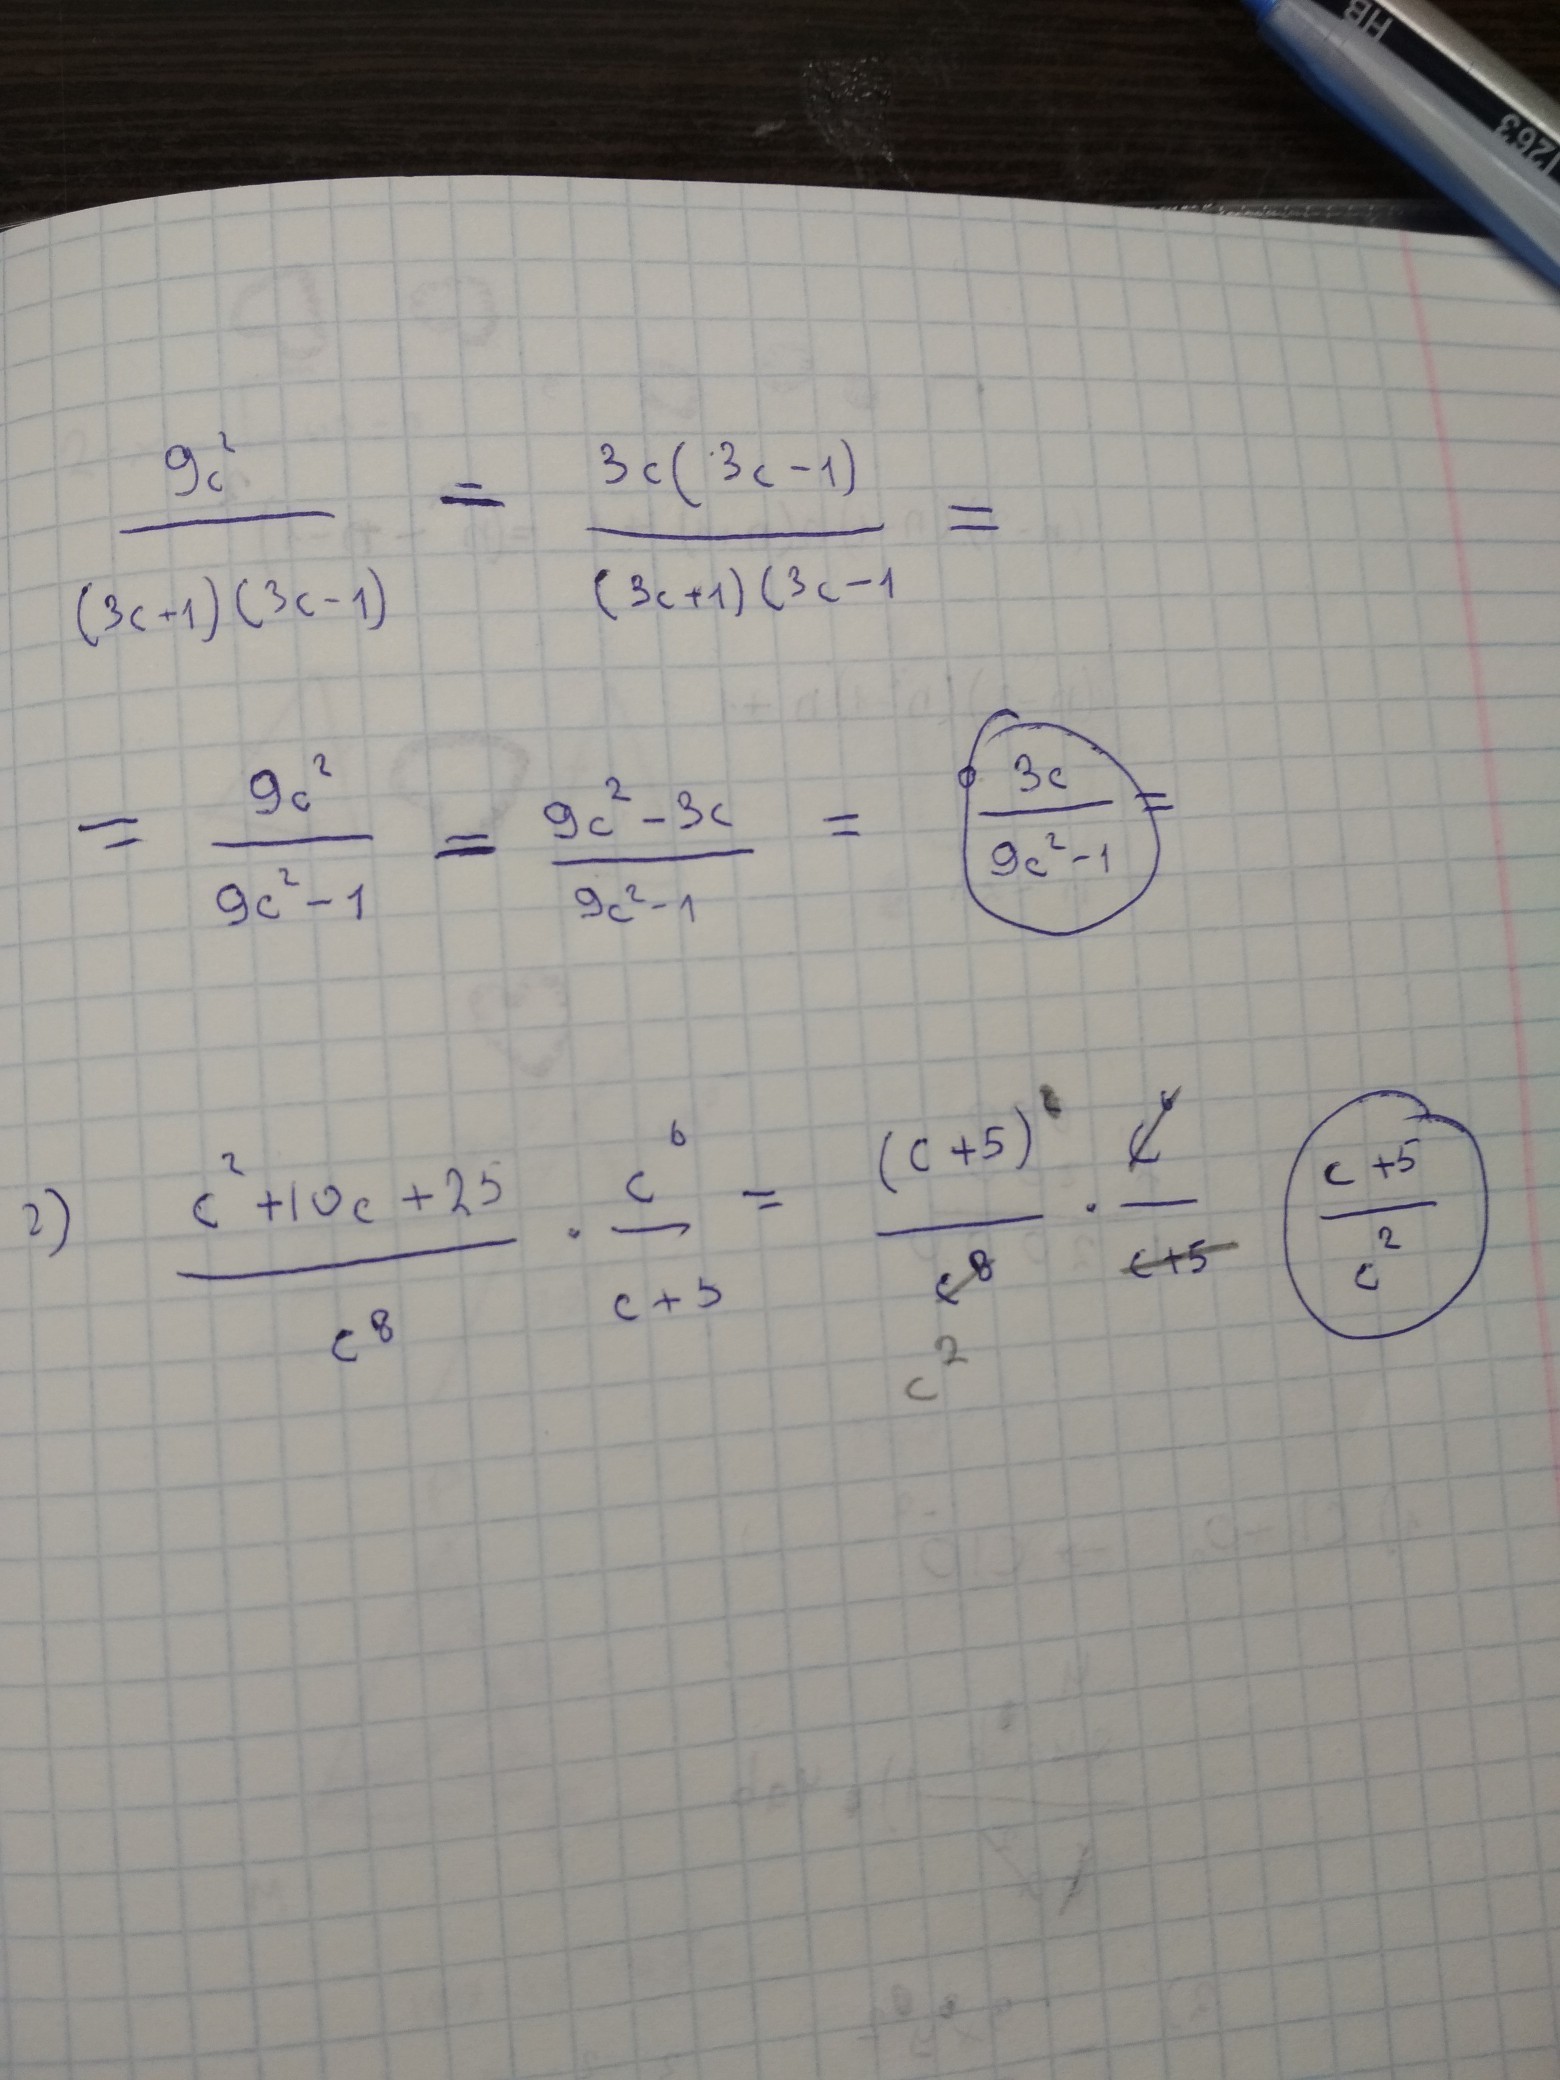 HB
1263
9c² / (3c+1)(3c-1) = 3c(3c-1) / (3c+1)(3c-1 =
= 9c² / 9c²-1 = 9c²-3c / 9c²-1 = 3c / 9c²-1 =
2) c²+10c+25 / c⁸ · c⁶ / c+5 = (c+5) / c⁸ · c⁶ / c+5 c+5 / c²
c²